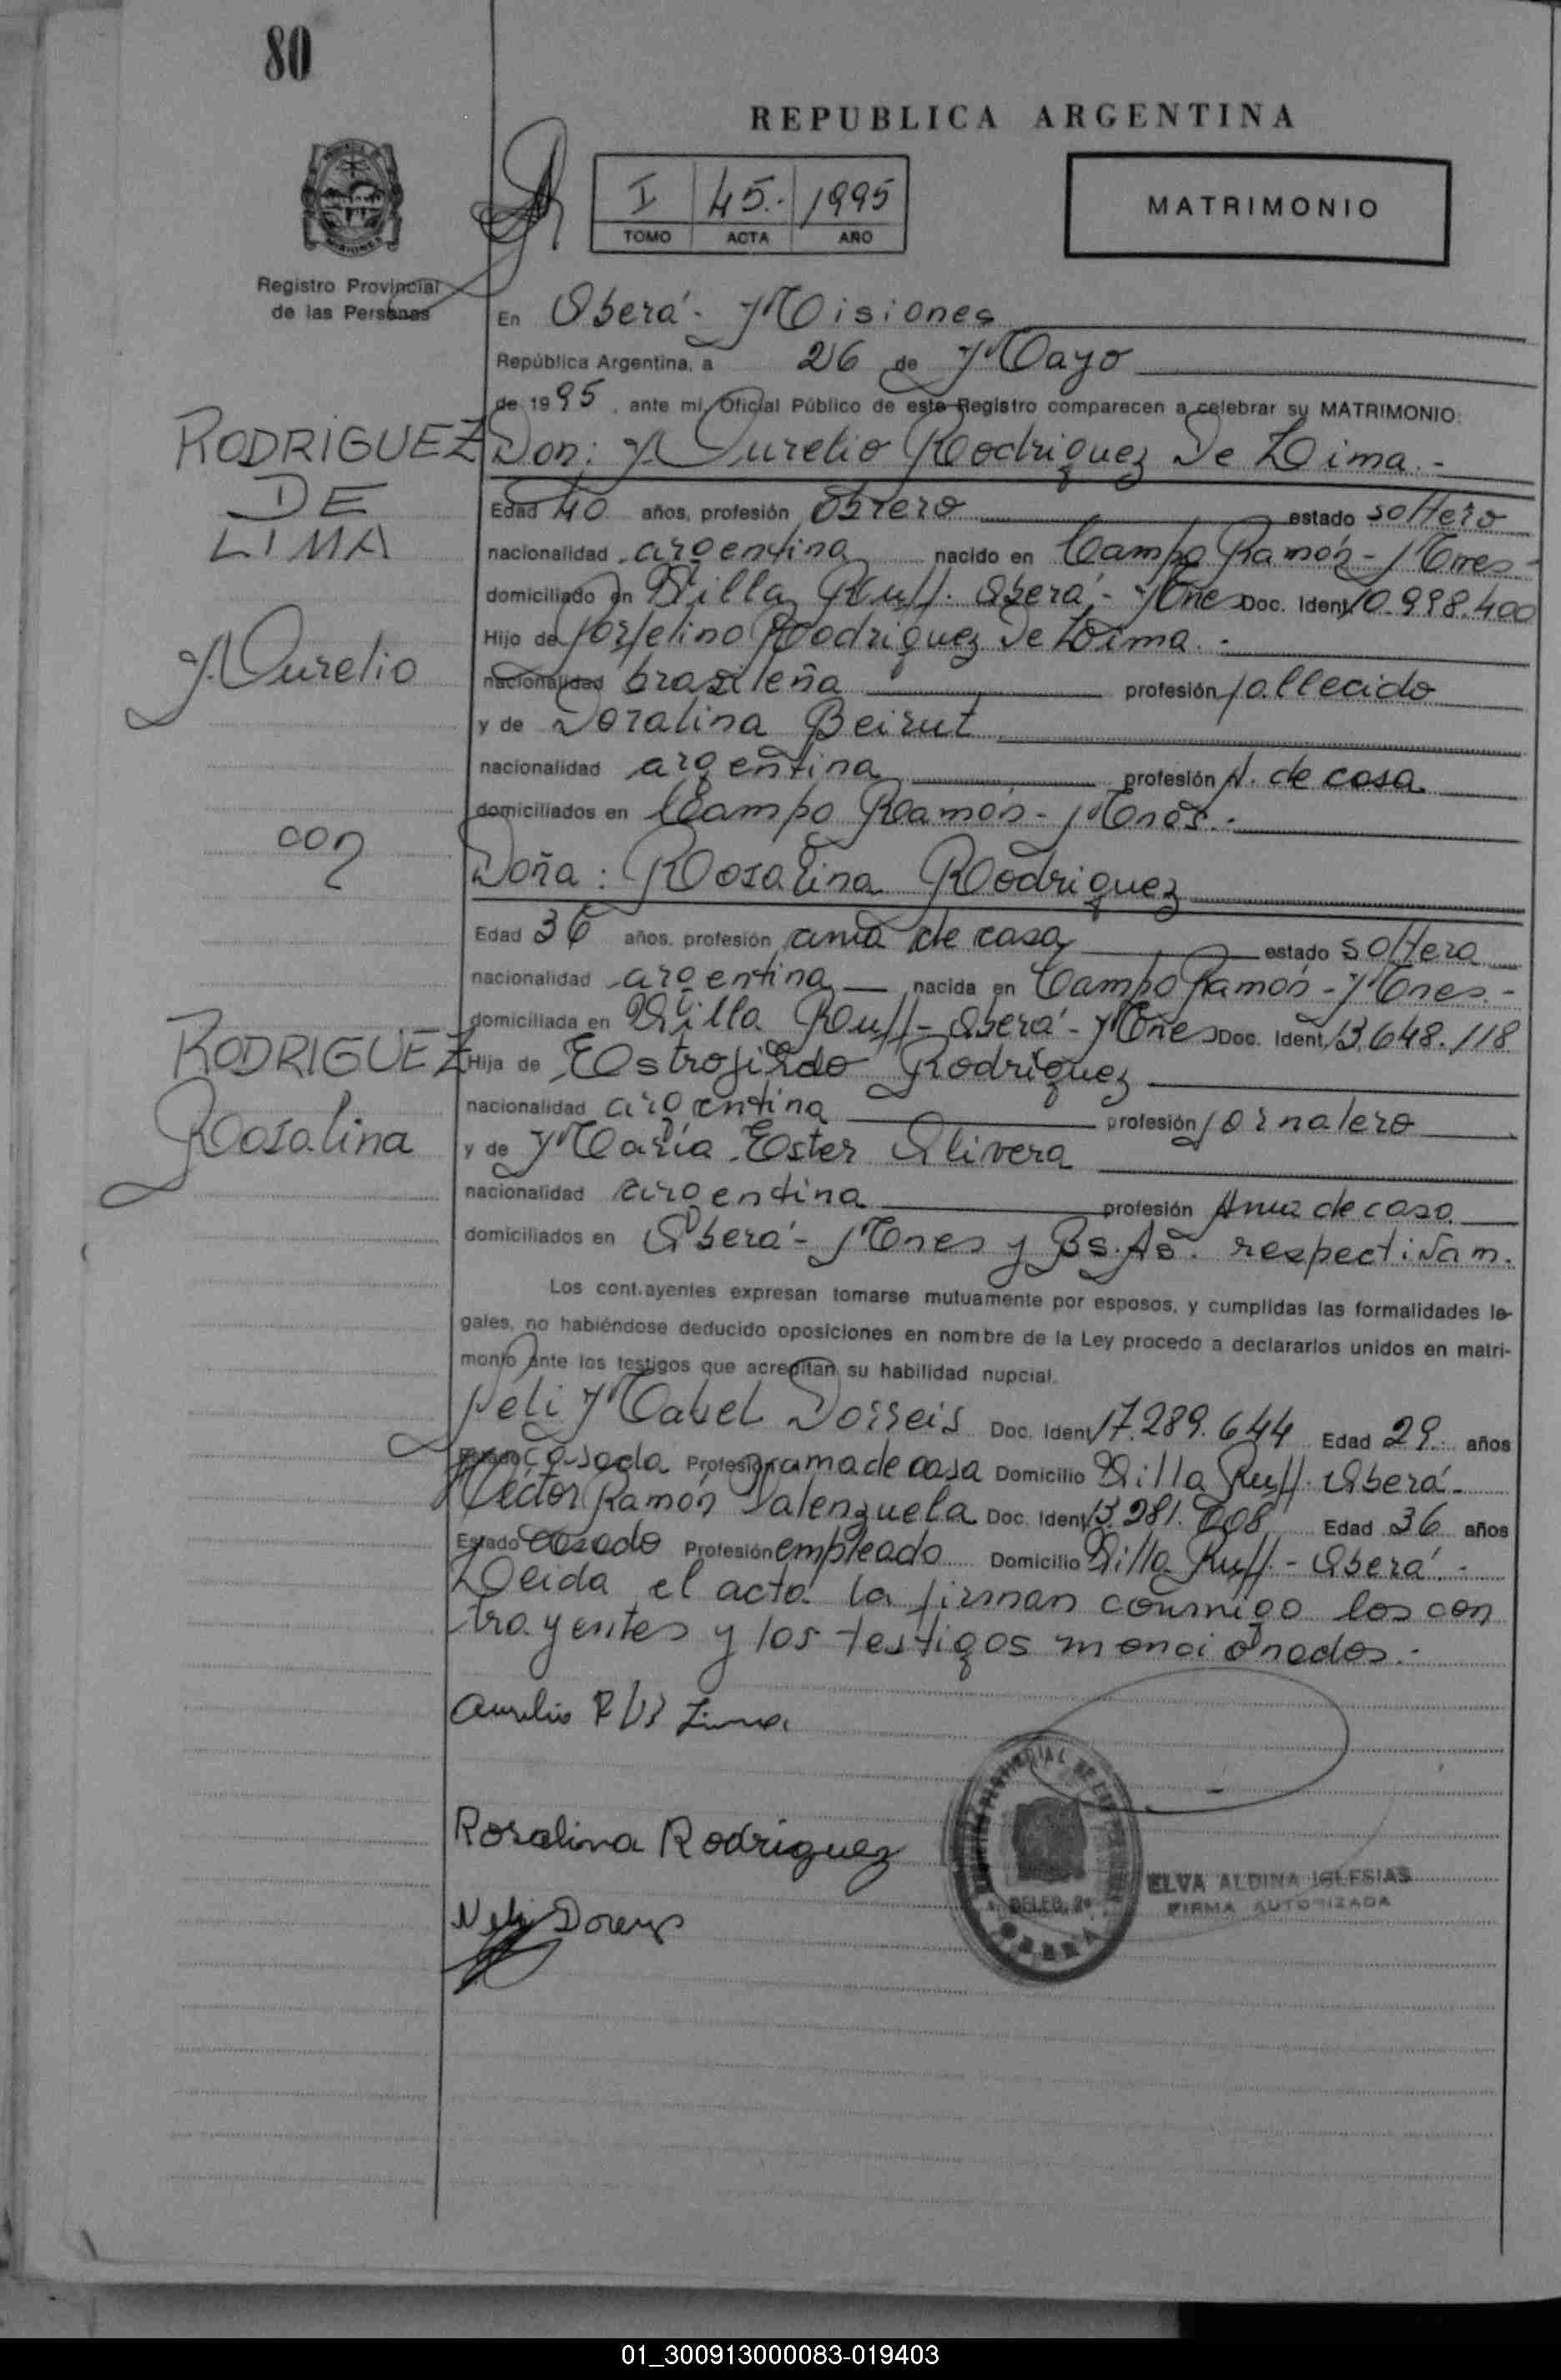 80
REPUBLICA ARGENTINA
I 45.- 1995
TOMO ACTA AÑO
MATRIMONIO
MISIONES
Registro Provincial
de las Personas
En Oberá - Misiones
República Argentina, a 26 de Mayo
de 1995, ante mi Oficial Público de este Registro comparecen a celebrar su MATRIMONIO:
RODRIGUEZ
DE
LIMA
Aurelio
con
RODRIGUEZ
Rosalina
Don: Aurelio Rodriguez De Lima.-
Edad 40 años, profesión Obrero estado soltero
nacionalidad argentina nacido en Campo Ramón - Mnes-
domiciliado en Villa Ruff. Oberá - Mnes Doc. Ident. 10.998.400
Hijo de Rodriguez De Lima.-
nacionalidad brasileña profesión fallecido
y de Doralina Beirut
nacionalidad argentina profesión A. de casa
domiciliados en Campo Ramón - Mnes.-
Doña: Rosalina Rodriguez
Edad 36 años, profesión ama de casa estado soltera
nacionalidad argentina nacida en Campo Ramón - Mnes.-
domiciliada en Villa Ruff - Oberá - Mnes Doc. Ident. 13.648.118
Hija de Rodriguez
nacionalidad argentina profesión jornalero
y de María Ester Olivera
nacionalidad argentina profesión Ama de casa
domiciliados en Oberá - Mnes y Bs.As. respectivam.
Los cont.ayentes expresan tomarse mutuamente por esposos, y cumplidas las formalidades le-
gales, no habiéndose deducido oposiciones en nombre de la Ley procedo a declararlos unidos en matri-
monio ante los testigos que acreditan su habilidad nupcial.
Neli Mabel Dorneis Doc. Ident. 17.289.644 Edad 29.- años
Estado casada Profesión ama de casa Domicilio Villa Ruff. Oberá-
Héctor Ramón Valenzuela Doc. Ident. 13.281.008 Edad 36 años
Estado casado Profesión empleado Domicilio Villa Ruff.- Oberá.-
Leida el acta la firman conmigo los con
trayentes y los testigos mencionados.-
Aurelio R Lima
Rosalina Rodriguez
Neli
DELEG. 2ª
OBERA
ELVA ALDINA IGLESIAS
FIRMA AUTORIZADA
01_300913000083-019403